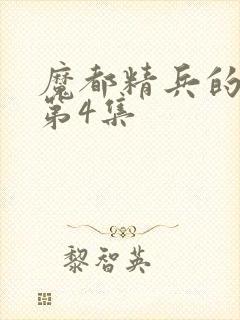 魔都精兵的
第4集
黎智英